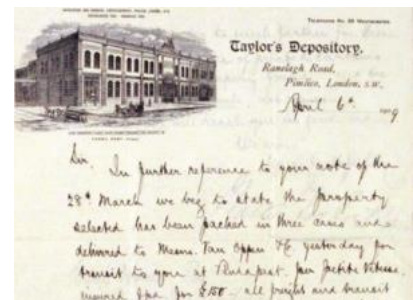 Taylor's Depository,
Ranelagh Road,
Pimlico, London, S.W.,
April 6th 1909
Sir.
In further reference to your note of the
28th March we beg to state the property
selected has been packed in three cases and
delivered to Messrs. Van Oppen & Co yesterday for
transit to you at Budapest. per
insured for £150 - all freight and transit